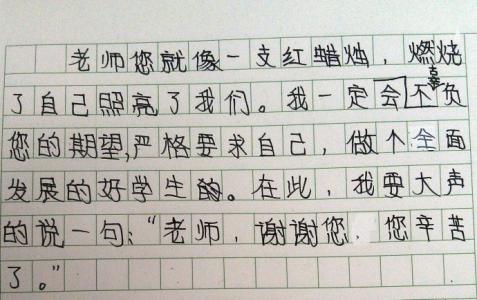 老师您就像一支红蜡烛，燃烧
了自己照亮了我们。我一定会不辜负
您的期望,严格要求自己，做个全面
发展的好学生的。在此，我要大声
的说一句：“老师，谢谢您，您辛苦
了。”